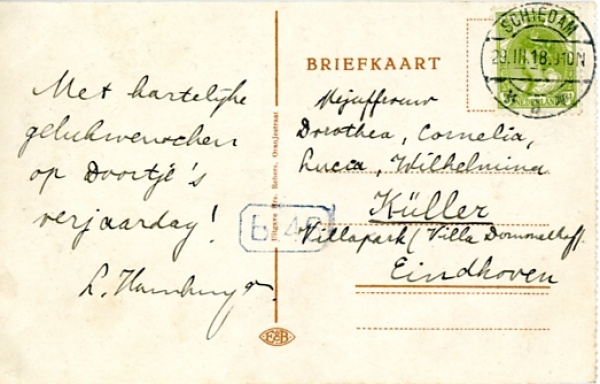 Met hartelijke
gelukwenschen
op Doortje's
verjaardag!
L. Hamburger.
BRIEFKAART
SCHIEDAM
29.III.18.
NEDERLAND
Mejuffrouw
Dorothea, Cornelia,
Lucia, Wilhelmina
Küller
Villapark (Villa Dommelhof).
Eindhoven